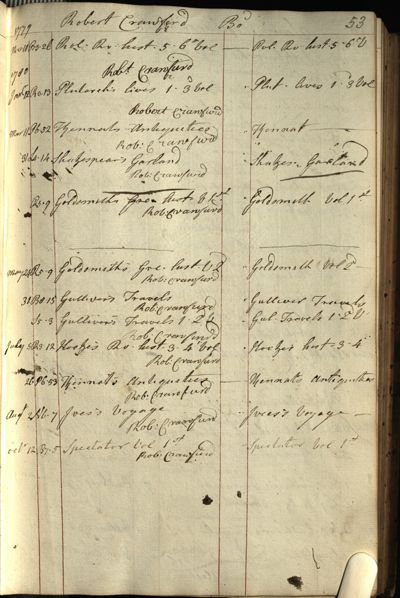 Robert Crawfurd Bd 53
1779
Rol. Ro. hist. 5. 6th Vol — Rol. Ro hist 5. 6th V
Robt Crawfurd
1780
Plutarch's lives 1. 3 Vol — Plut. lives 1. 3 Vol
Robert Crawfurd
Mar Kennats Antiquities — Kennat —
Rob: Crawfurd
Shakspears Garland Shakes. Garland
Rob: Crawfurd
Goldsmiths Gree hist V 1st Goldsmith Vol 1st
Rob: Crawfurd
May Goldsmiths Gre. hist V 2 Goldsmith Vol 2
Rob: Crawfurd
31 Gullivers Travels Gulliver Travels
Rob: Crawfurd
Gullivers Travels 1. 2 V Gul. Travels 1. 2 V
Rob: Crawfurd
July Hooke's Ro. hist 3. 4 Vol Hookes hist 3. 4
Rob: Crawfurd
26 Kennats Antiquities — Kennats Antiquities
Rob: Crawfurd
Aug Ives's Voyage Ives's Voyage —
Rob: Crawfurd
Octr 12 Spectator Vol 1st Spectator Vol 1st
Rob: Crawfurd